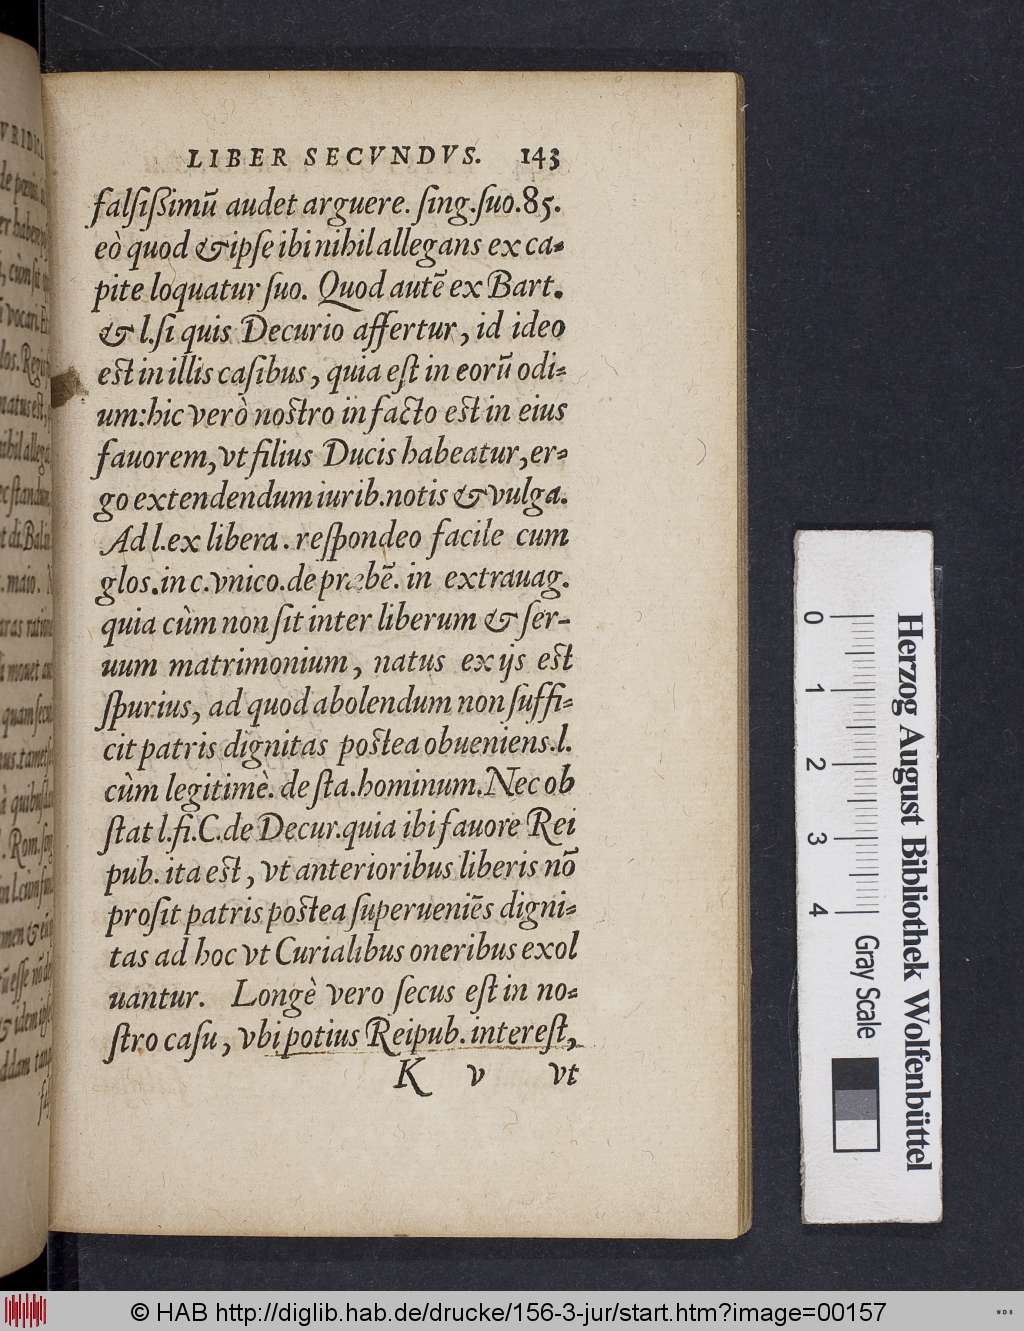 LIBER SECVNDVS. 143
falſiſsimũ audet arguere. ſing. ſuo. 85.
eò quod & ipſe ibi nihil allegans ex ca-
pite loquatur ſuo. Quod autẽ ex Bart.
& l. ſi quis Decurio affertur, id ideo
est in illis caſibus, quia eſt in eorũ odi-
um: hic verò nostro in facto est in eius
fauorem, vt filius Ducis habeatur, er-
go extendendum iurib. notis & vulga.
Ad l. ex libera. reſpondeo facile cum
glos. in c. vnico. de præbẽ. in extrauag.
quia cùm non ſit inter liberum & ſer-
uum matrimonium, natus ex ijs est
ſpurius, ad quod abolendum non ſuffi-
cit patris dignitas postea obueniens. l.
cùm legitimè. de ſta. hominum. Nec ob
ſtat l. fi. C. de Decur. quia ibi fauore Rei
pub. ita est, vt anterioribus liberis nõ
proſit patris postea ſuperueniẽs digni-
tas ad hoc vt Curialibus oneribus exol
uantur. Longè vero ſecus eſt in no-
ſtro caſu, vbi potius Reipub. intereſt,
K v vt
VRIDICA
nihil allega
vocari
maio.
ratione
monet
quibuſdam
Rom. ſing
idem
0 1 2 3 4
Gray Scale
Herzog August Bibliothek Wolfenbüttel
© HAB http://diglib.hab.de/drucke/156-3-jur/start.htm?image=00157